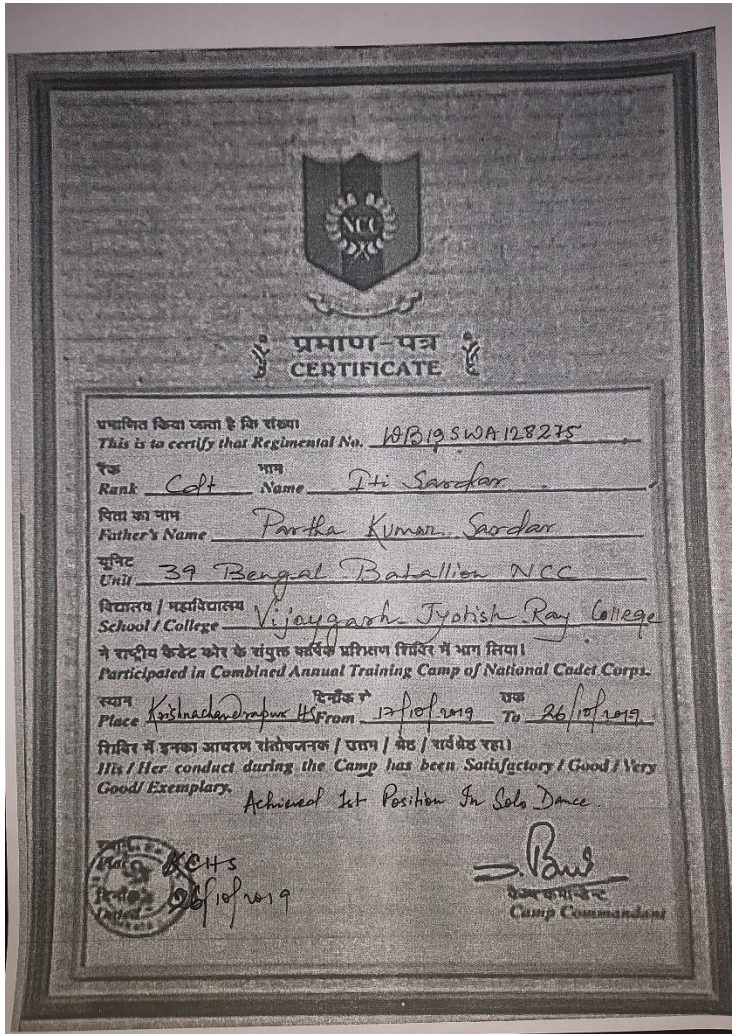 NCC
प्रमाण-पत्र
CERTIFICATE
प्रमाणित किया जाता है कि संख्या
This is to certify that Regimental No. WB19SWA128275
रैंक नाम
Rank Cdt Name Iti Sardar
पिता का नाम
Father's Name Partha Kumar Sardar
यूनिट
Unit 39 Bengal Batallion NCC
विद्यालय / महाविद्यालय
School / College Vijaygarh Jyotish Ray College
ने राष्ट्रीय कैडेट कोर के संयुक्त वार्षिक प्रशिक्षण शिविर में भाग लिया।
Participated in Combined Annual Training Camp of National Cadet Corps.
स्थान दिनाँक से तक
Place Krishnachandrapur HS From 17/10/2019 To 26/10/2019
शिविर में इनका आचरण संतोषजनक / उत्तम / श्रेष्ठ / सर्वश्रेष्ठ रहा।
His / Her conduct during the Camp has been Satisfactory / Good / Very
Good/ Exemplary.
Achieved 1st Position In Solo Dance.
स्थान
Place KCHS
दिनाँक
Dated 26/10/2019
कैम्प कमान्डेन्ट
Camp Commandant